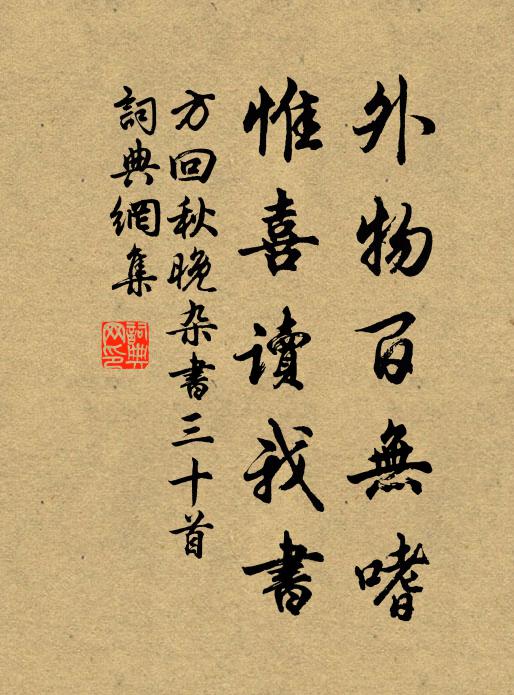 外物百無嗜
惟喜讀我書
方回秋晚杂書三十首
詞典網集
詞典网印